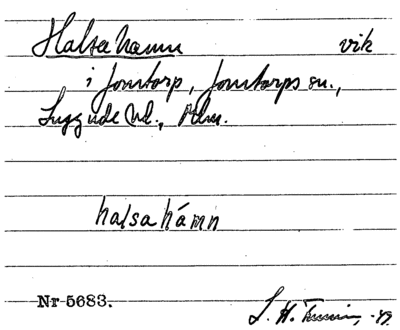 Halsa hamn vik
i Jonstorp, Jonstorps sn.,
Luggude hd., Mlm.
halsa hámn
Nr 5683.